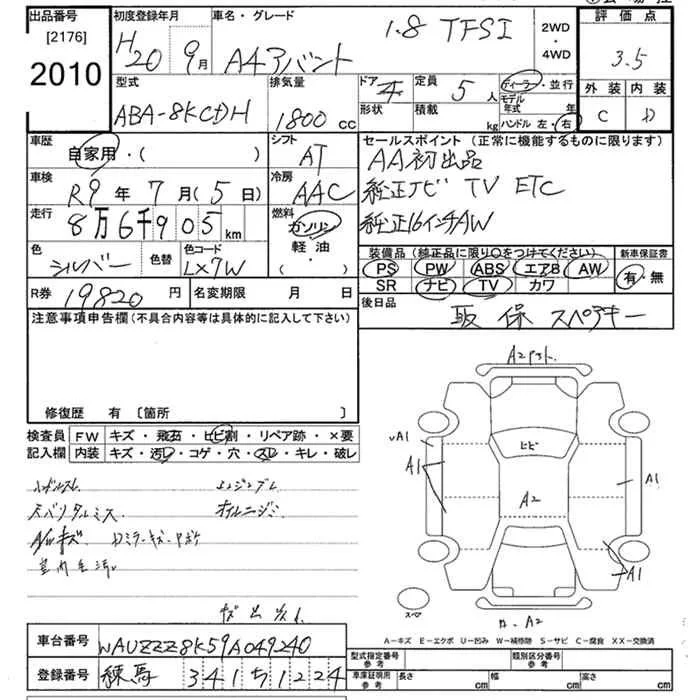 出品番号 初度登録年月 車名・グレード 評価点
[2176] H20 9月 A4アバント 1.8 TFSI 2WD・4WD 3.5
2010
型式 排気量 ドア 定員 ディーラー・並行 外装 内装
ABA-8KCDH 1800cc 5人 モデル年式 年 C D
形状 積載 kg ハンドル 左・右
車歴 シフト セールスポイント(正常に機能するものに限ります)
自家用・( ) AT AA初出品
車検 冷房 純正ナビ TV ETC
R9年7月(5日) AAC 純正16インチAW
走行 燃料
8万6千905km ガソリン
色 色替 色コード 軽油・( ) 装備品(純正品に限り○をつけてください) 新車保証書
シルバー LX7W PS PW ABS エアB AW 有・無
SR ナビ TV カワ
R券 19820円 名変期限 月 日 後日品 取 保 スペアキー
注意事項申告欄(不具合内容等は具体的に記入して下さい)
修復歴 有 [箇所 ]
検査員 FW キズ・飛石・ヒビ割・リペア跡・×要
記入欄 内装 キズ・汚レ・コゲ・穴・スレ・キレ・破レ
ハンドルスレ エンジンブレ
オイルニジミ
AWキズ
室内毛汚レ
A2
ヒビ
A1
A1
A1
A2
A1
スペア
A2
A-キズ E-エクボ U-凹み W-補修跡 S-サビ C-腐食 XX-交換済
車台番号 WAUZZZ8K59A049240
登録番号 練馬 341ち1224
型式指定番号 参考 類別区分番号 参考
車庫証明用 参考 長さ cm 幅 cm 高さ cm